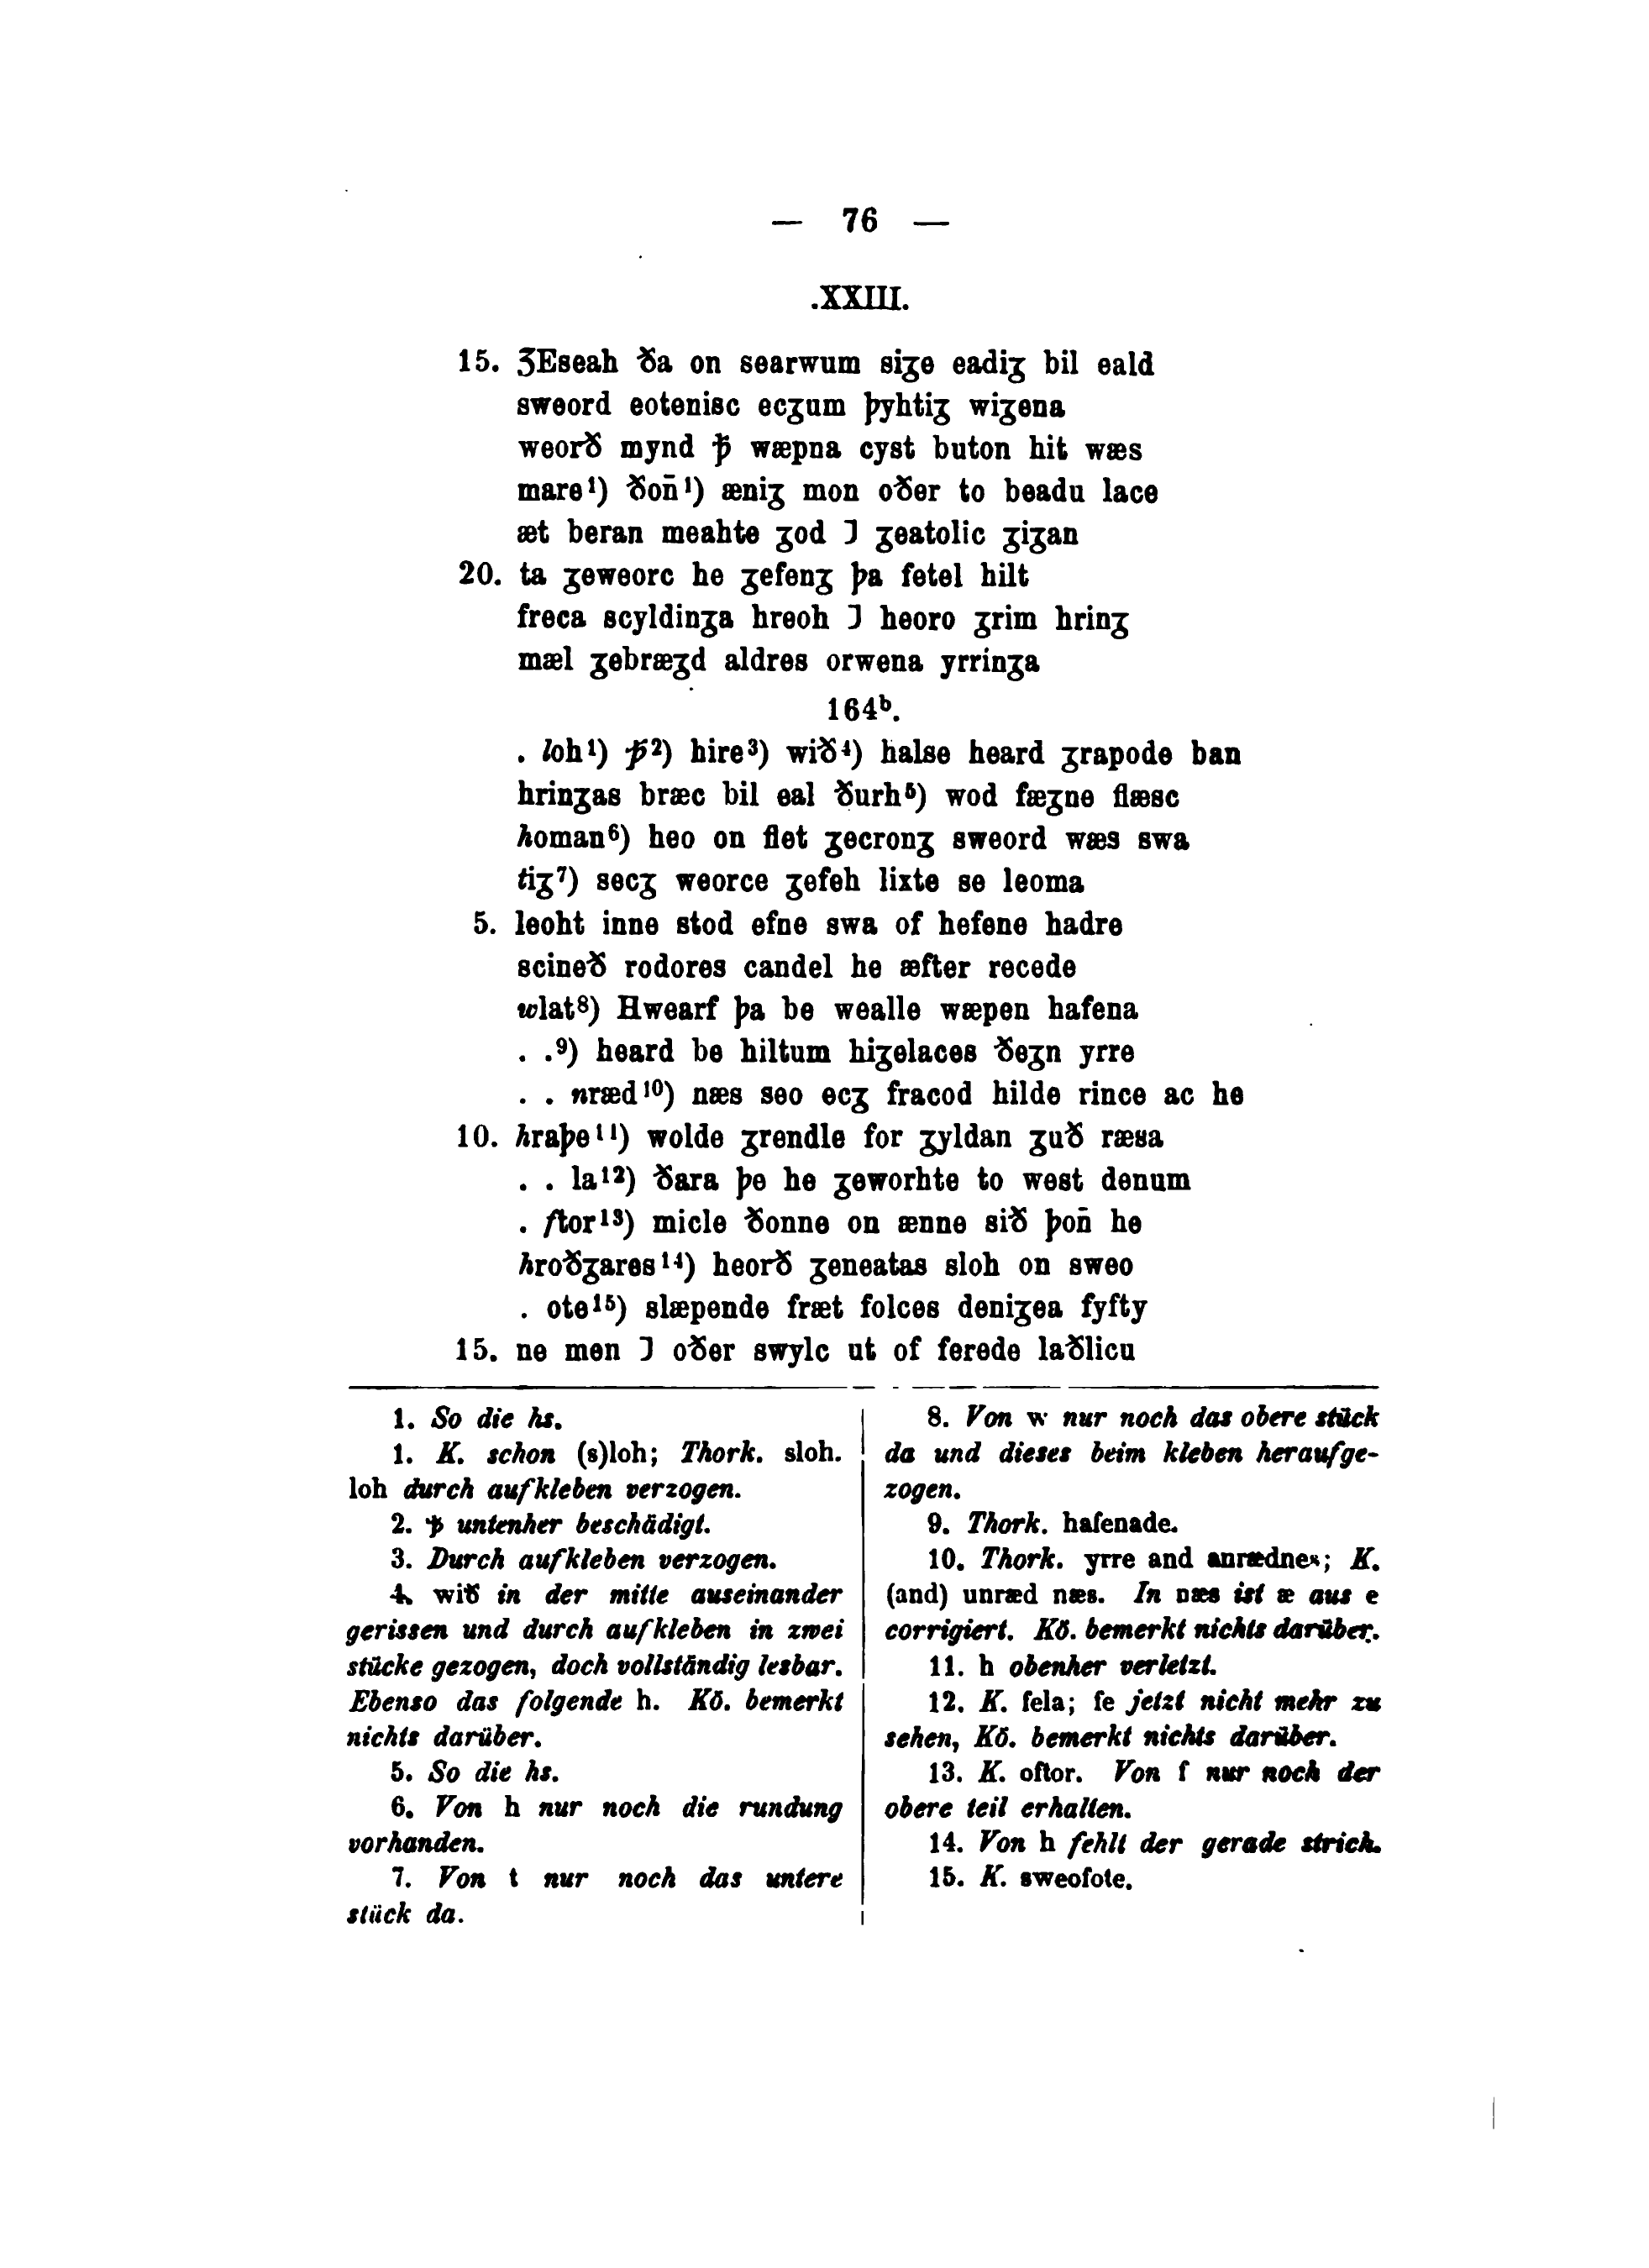 — 76 —
.XXIII.
15. ƷEseah ða on searwum siʒe eadiʒ bil eald
sweord eotenisc ecʒum þyhtiʒ wiʒena
weorð mynd ꝥ wæpna cyst buton hit wæs
mare¹) ðon̄¹) æniʒ mon oðer to beadu lace
æt beran meahte ʒod ⁊ ʒeatolic ʒiʒan
20. ta ʒeweorc he ʒefenʒ þa fetel hilt
freca scyldinʒa hreoh ⁊ heoro ʒrim hrinʒ
mæl ʒebræʒd aldres orwena yrrinʒa
164ᵇ.
. loh¹) ꝥ²) hire³) wið⁴) halse heard ʒrapode ban
hrinʒas bræc bil eal ðurh⁵) wod fæʒne flæsc
homan⁶) heo on flet ʒecronʒ sweord wæs swa
tiʒ⁷) secʒ weorce ʒefeh lixte se leoma
5. leoht inne stod efne swa of hefene hadre
scineð rodores candel he æfter recede
wlat⁸) Hwearf þa be wealle wæpen hafena
. .⁹) heard be hiltum hiʒelaces ðeʒn yrre
. . nræd¹⁰) næs seo ecʒ fracod hilde rince ac he
10. hraþe¹¹) wolde ʒrendle for ʒyldan ʒuð ræsa
. . la¹²) ðara þe he ʒeworhte to west denum
. ftor¹³) micle ðonne on ænne sið þon̄ he
hroðʒares¹⁴) heorð ʒeneatas sloh on sweo
. ote¹⁵) slæpende fræt folces deniʒea fyfty
15. ne men ⁊ oðer swylc ut of ferede laðlicu
1. So die hs.
1. K. schon (s)loh; Thork. sloh.
loh durch aufkleben verzogen.
2. ꝥ untenher beschädigt.
3. Durch aufkleben verzogen.
4. wið in der mitte auseinander
gerissen und durch aufkleben in zwei
stücke gezogen, doch vollständig lesbar.
Ebenso das folgende h. Kö. bemerkt
nichts darüber.
5. So die hs.
6. Von h nur noch die rundung
vorhanden.
7. Von t nur noch das untere
stück da.
8. Von w nur noch das obere stück
da und dieses beim kleben heraufge-
zogen.
9. Thork. hafenade.
10. Thork. yrre and anrædnes; K.
(and) unræd næs. In næs ist æ aus e
corrigiert. Kö. bemerkt nichts darüber.
11. h obenher verletzt.
12. K. fela; fe jetzt nicht mehr zu
sehen, Kö. bemerkt nichts darüber.
13. K. oftor. Von f nur noch der
obere teil erhalten.
14. Von h fehlt der gerade strich.
15. K. sweofote.